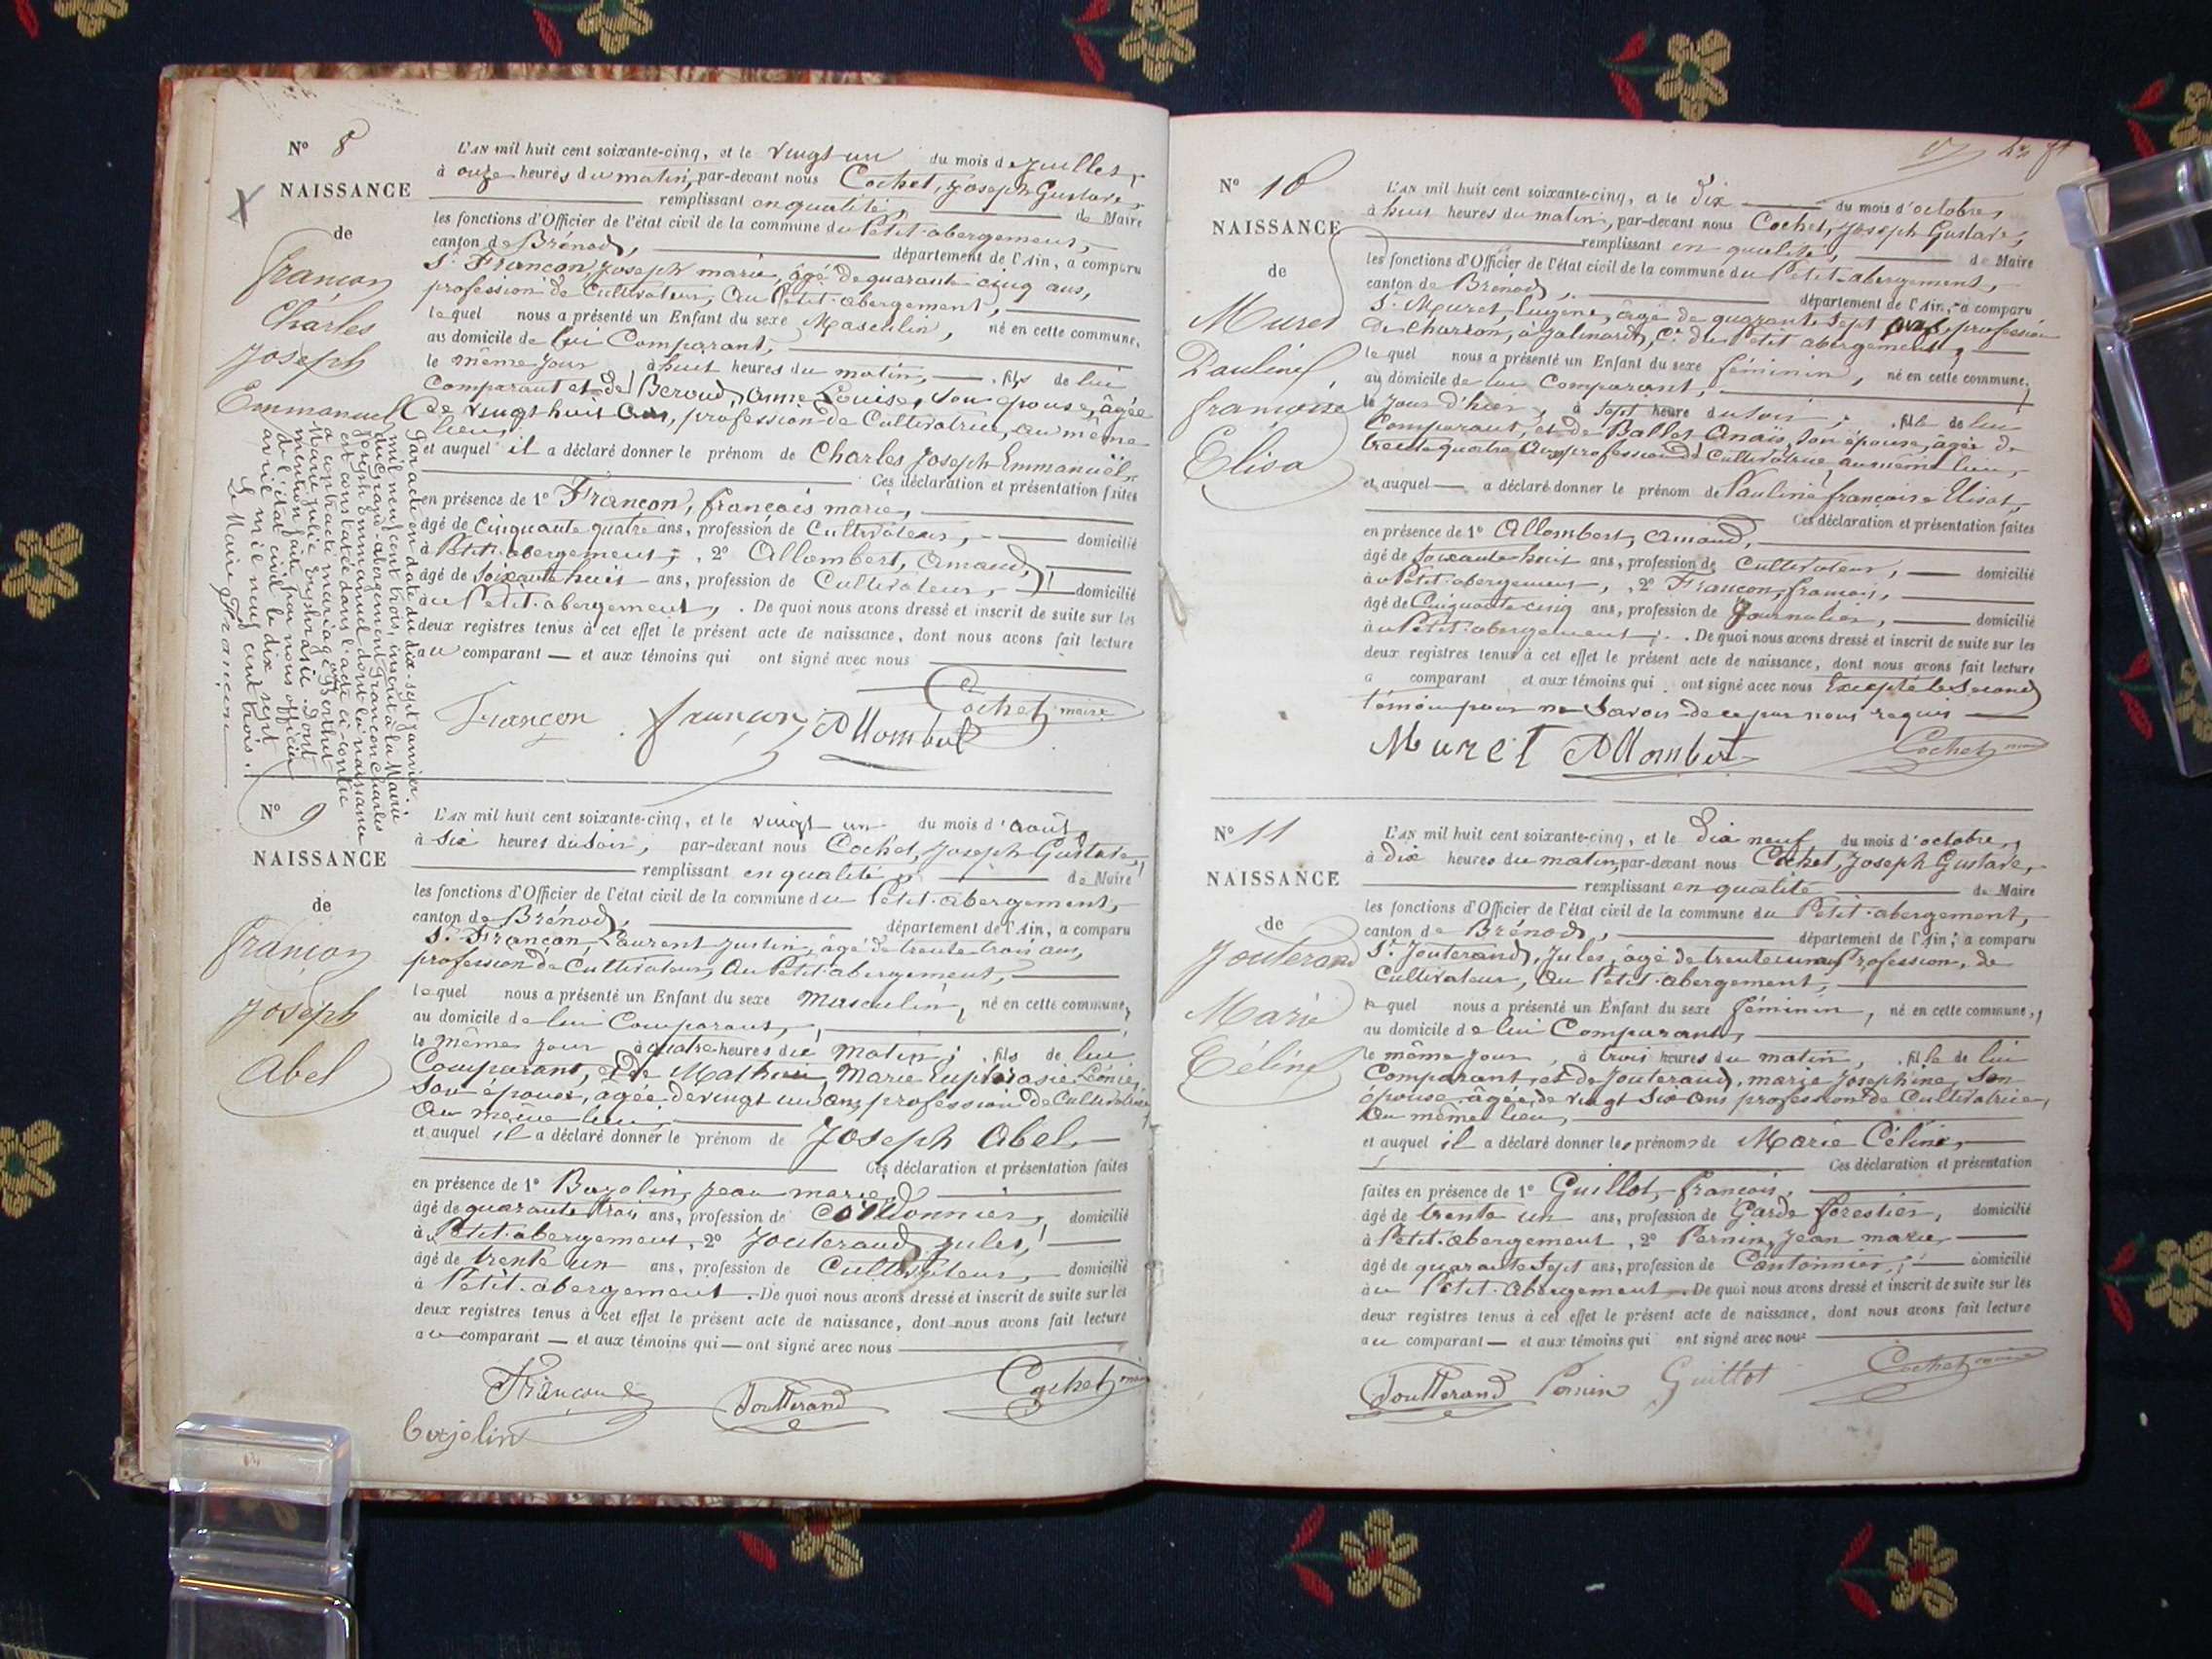 N° 8
NAISSANCE
de
françon
Charles
Joseph
Emmanuel
L'AN mil huit cent soixante-cinq, et le vingt un du mois de Juillet,
à onze heures du matin, par-devant nous Cochet, Joseph Gustave,
remplissant en qualité, de Maire
les fonctions d'Officier de l'état civil de la commune du Petit-abergement,
canton de Brénod, département de l'Ain, a comparu
Sr. Françon, Joseph marie, âgé de quarante cinq ans,
profession de Cultivateur, au Petit-abergement,
lequel nous a présenté un Enfant du sexe Masculin, né en cette commune,
au domicile de lui Comparant,
le même jour à huit heures du matin, fils de lui
Comparant et de Beroud, anne Louise, son épouse, âgée
de vingt huit ans, profession de Cultivatrice, au même
lieu,
et auquel il a déclaré donner le prénom de Charles Joseph Emmanuël,
Ces déclaration et présentation faites
en présence de 1° Françon, françois marie,
âgé de Cinquante quatre ans, profession de Cultivateur, domicilié
à Petit-abergement, 2° Allombert, Amand,
âgé de soixante huit ans, profession de Cultivateur, domicilié
au Petit-abergement, . De quoi nous avons dressé et inscrit de suite sur les
deux registres tenus à cet effet le présent acte de naissance, dont nous avons fait lecture
au comparant — et aux témoins qui ont signé avec nous
Françon françon Allombert Cochet maire
Par acte en date du dix-sept janvier
mil neuf cent trois, inscrit à la Mairie
du Grand-abergement, Françon Charles
Joseph Emmanuel dont la naissance
est constatée dans l'acte ci-contre
a contracté mariage avec
Marie Julie Euphrasie. Dont
mention faite par nous officier
de l'état civil le dix sept
avril mil neuf cent trois.
Le Maire, Françon
N° 9
NAISSANCE
de
françon
Joseph
Abel
L'AN mil huit cent soixante-cinq, et le vingt un du mois d'août,
à six heures du soir, par-devant nous Cochet, Joseph Gustave,
remplissant en qualité, de Maire
les fonctions d'Officier de l'état civil de la commune du Petit-abergement,
canton de Brénod, département de l'Ain, a comparu
Sr. Françon Laurent Justin, âgé de trente trois ans,
profession de Cultivateur, au Petit-abergement,
lequel nous a présenté un Enfant du sexe masculin, né en cette commune,
au domicile de lui Comparant,
le même jour à quatre heures du matin, fils de lui
Comparant, et de Mathieu, Marie Euphrasie Léonie,
son épouse, âgée de vingt un ans, profession de Cultivatrice
au même lieu,
et auquel il a déclaré donner le prénom de Joseph Abel,
Ces déclaration et présentation faites
en présence de 1° Bujolin, Jean marie,
âgé de quarante trois ans, profession de domicilié
à Petit-abergement, 2° Jouterand, Jules,
âgé de trente un ans, profession de Cultivateur, domicilié
à Petit-abergement. De quoi nous avons dressé et inscrit de suite sur les
deux registres tenus à cet effet le présent acte de naissance, dont nous avons fait lecture
au comparant — et aux témoins qui — ont signé avec nous
Françon Joutterand Cochet maire
bujolin
N° 10
NAISSANCE
de
Muret
Pauline
françoise
Elisa
L'AN mil huit cent soixante-cinq, et le dix du mois d'octobre,
à huit heures du matin, par-devant nous Cochet, Joseph Gustave,
remplissant en qualité, de Maire
les fonctions d'Officier de l'état civil de la commune du Petit-abergement,
canton de Brénod, département de l'Ain, a comparu
Sr. Muret, Eugène, âgé de quarante sept ans, profession
de charron, à Jalinard, Cne du Petit abergement,
lequel nous a présenté un Enfant du sexe féminin, né en cette commune,
au domicile de lui Comparant,
le jour d'hier, à sept heure du soir, fille de lui
Comparant, et de Ballet Anaïs, son épouse, âgée de
trente quatre ans, profession de Cultivatrice, au même lieu,
et auquel — a déclaré donner le prénom de Pauline françoise Elisa,
Ces déclaration et présentation faites
en présence de 1° Allombert, Amand,
âgé de soixante huit ans, profession de Cultivateur, domicilié
au Petit-abergement, 2° Françon, françois,
âgé de Cinquante cinq ans, profession de Journalier, domicilié
au Petit-abergement, . De quoi nous avons dressé et inscrit de suite sur les
deux registres tenus à cet effet le présent acte de naissance, dont nous avons fait lecture
a comparant et aux témoins qui ont signé avec nous Excepté le second
témoin pour ne savoir de ce par nous requis
Muret Allombert Cochet maire
N° 11
NAISSANCE
de
Jouterand
Marie
Céline
L'AN mil huit cent soixante-cinq, et le dix neuf du mois d'octobre,
à dix heures du matin, par-devant nous Cochet, Joseph Gustave,
remplissant en qualité de Maire
les fonctions d'Officier de l'état civil de la commune du Petit-abergement,
canton de Brénod, département de l'Ain, a comparu
Sr. Jouterand, Jules, âgé de trente un ans, Profession de
Cultivateur, au Petit-abergement,
lequel nous a présenté un Enfant du sexe féminin, né en cette commune,
au domicile de lui Comparant,
le même jour, à trois heures du matin, fille de lui
Comparant, et de Jouterand, marie Josephine, son
épouse, âgée de vingt six ans profession de Cultivatrice,
au même lieu,
et auquel il a déclaré donner les prénoms de Marie Céline,
Ces déclaration et présentation
faites en présence de 1° Guillot, françois,
âgé de trente un ans, profession de Garde forestier, domicilié
à Petit-abergement, 2° Pernin, Jean marie,
âgé de quarante sept ans, profession de Cantonnier, domicilié
au Petit-abergement. De quoi nous avons dressé et inscrit de suite sur les
deux registres tenus à cet effet le présent acte de naissance, dont nous avons fait lecture
au comparant — et aux témoins qui ont signé avec nous
Joutterand Pernin Guillot Cochet maire